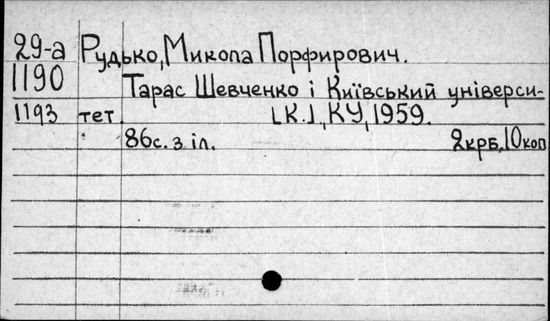 29-а Рудько, Микола Порфирович.
1190 Тарас Шевченко і Київський універси-
1193 тет. [К.], КУ, 1959.
86с. з іл. 2крб, 10коп